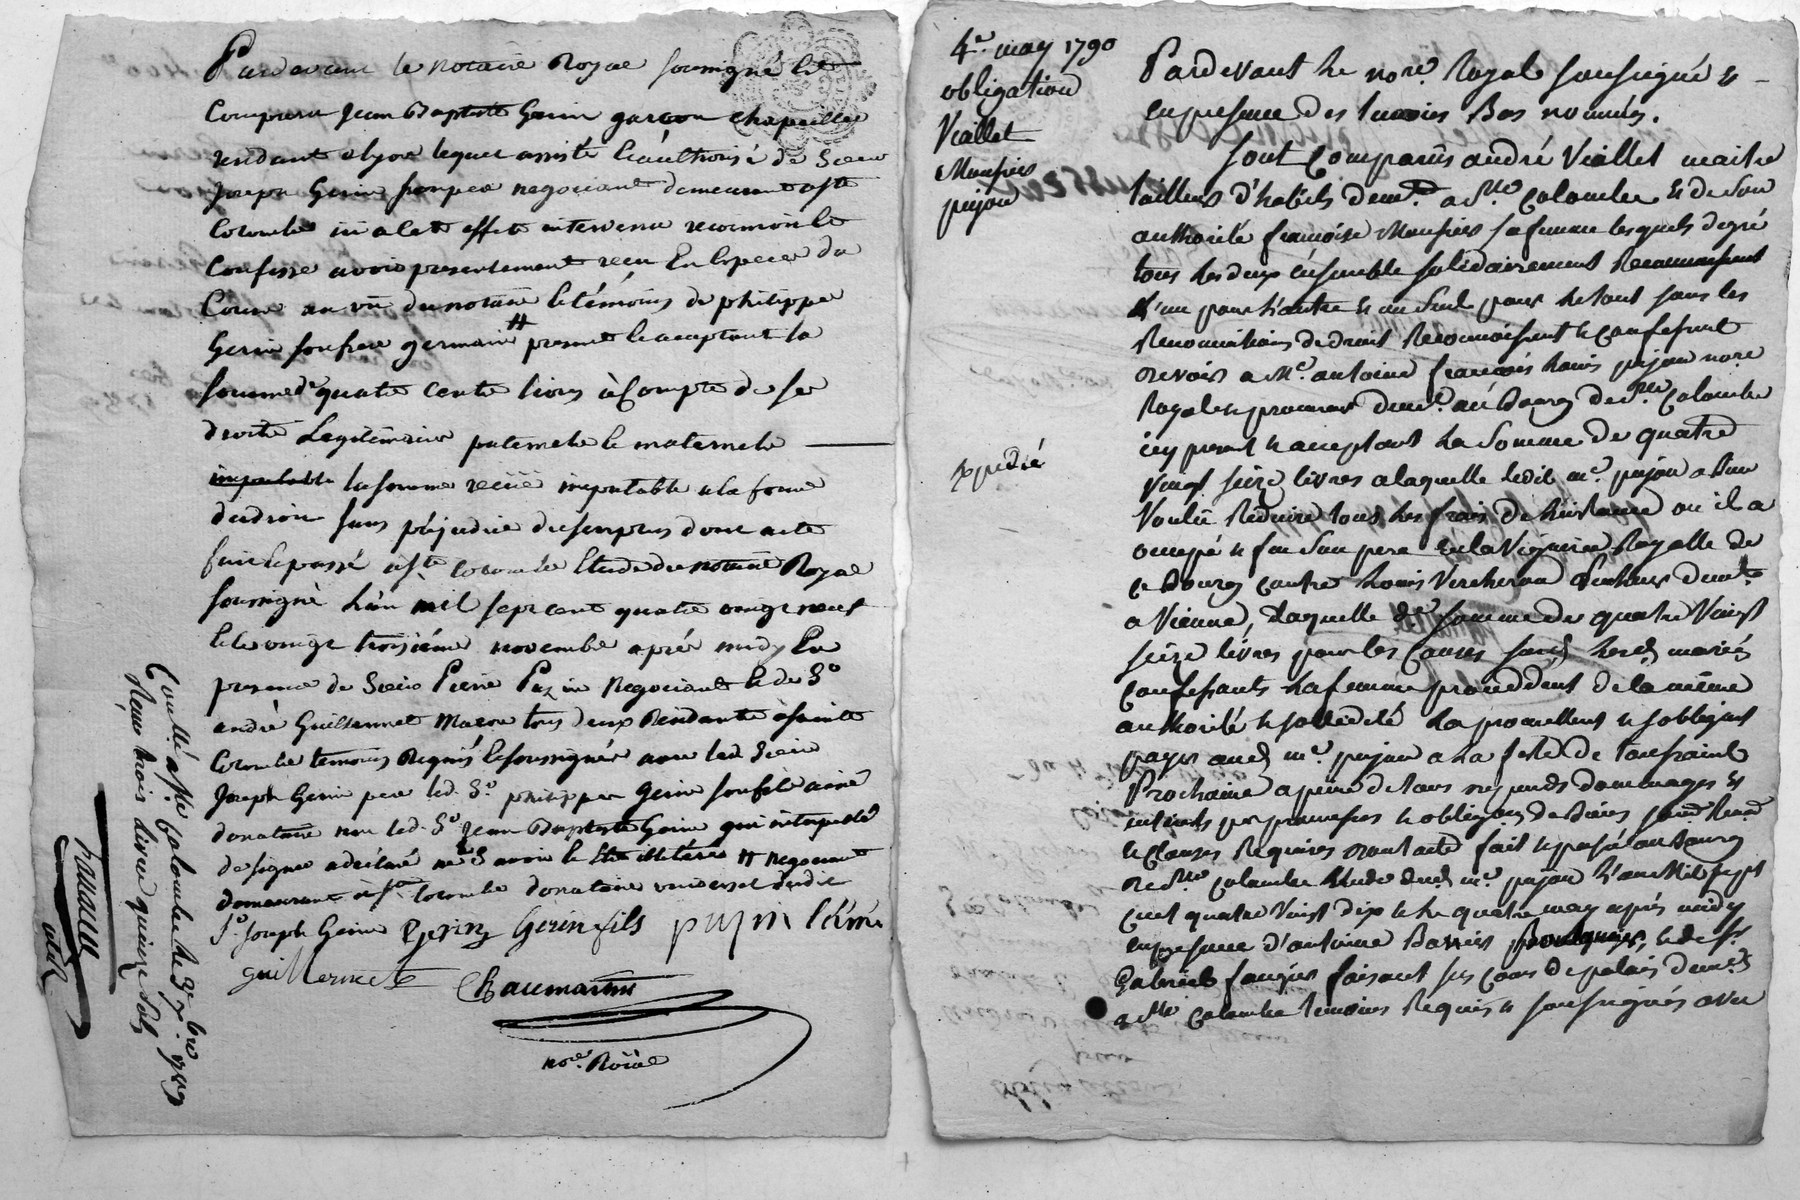 Pardevant le notaire Royal soussigné &
Comparu jean Baptiste Gerin garcon chapellier
residant a lyon lequel assisté & authorisé de Sieur
joseph Gerin son pere negociant demeurant a ste
Colombe ici a cet effet intervenu reconnoit &
Confesse avoir presentement recu En Especes du
Cours au vû du notaire & témoins de philippe
Gerin son frere germain # present & acceptant la
somme de quatre cents livres à Compte de se
droits Legitimaires paternels & maternels
imputable la somme recüe imputable a la forme
du droit sans préjudice du surplus dont acte
fait & passé a ste Colombe Etude du notaire Royal
soussigné L'an mil sept cent quatre vingt neuf
& le vingt troisième novembre après midy En
presence de Sieur Pierre Puzin Negociant & de Sr
andré Guillermet Macon tous deux Residants à sainte
Colombe temoins Requis & soussignés avec led. Sieur
joseph Gerin pere led. Sr philippe Gerin son fils ainé
donataire non led. Sr jean Baptiste Gerin qui interpellé
de signer a declaré ne savoir & Etre illitéré # negociant
demeurant a ste Colombe donataire universel dudit
Sr joseph Gerin Gerin Gerin fils puzin témoin
guillermet Chaumartin
nore. Roial
Conllé a ste Colombe le 3 xbre 1789
Reçu trois livres quinze sols
4e. may 1790
obligation
Viallet
Mousier
pujou
Expedié
Pardevant le nore. Royal soussigné &
en presence des temoins Bas nommés.
Sont Comparûs andré Viallet maitre
tailleur d'habits demt. a Ste. Colombe & de Son
authorité françoise Mousier sa femme lesquels degré
tous les deux ensemble solidairement
l'un pour l'autre & un seul pour le tout sans les
Renonciations de droit Reconnoissent & confessent
devoir a Me. antoine françois Louis pujou nore
Royal & procureur demt. au Bourg de Ste. Colombe
icy present & acceptant La Somme de quatre
vingt seize livres a laquelle ledit me. pujou a Bien
Voulû Reduire tous les frais de L'instance ou il a
occupé & feu Son pere en la Viguerie Royalle de
ce Bourg contre Louis Vercheron demt.
a Vienne, Laquelle de. somme de quatre Vingt
seize livres pour les Causes lesd. mariés
confessants La femme procedant de la même
authorité & sollidité La promettent & s'obligent
payer aud. me. pujou a La fete de toussaint
Prochaine a peine de tous depends dommages &
interets par promesses & obligaons de Biens
& Clauses Requises dont acte fait & passé au Bourg
de Ste. Colombe Etude dud. me. pujou L'an Mil sept
cent quatre Vingt dix & le quatre may après midy
en presence d'antoine Barrier & de Sr
Gabriel faugier faisant ses cours de palais demts.
a Ste Colombe temoins Requis & soussignés avec